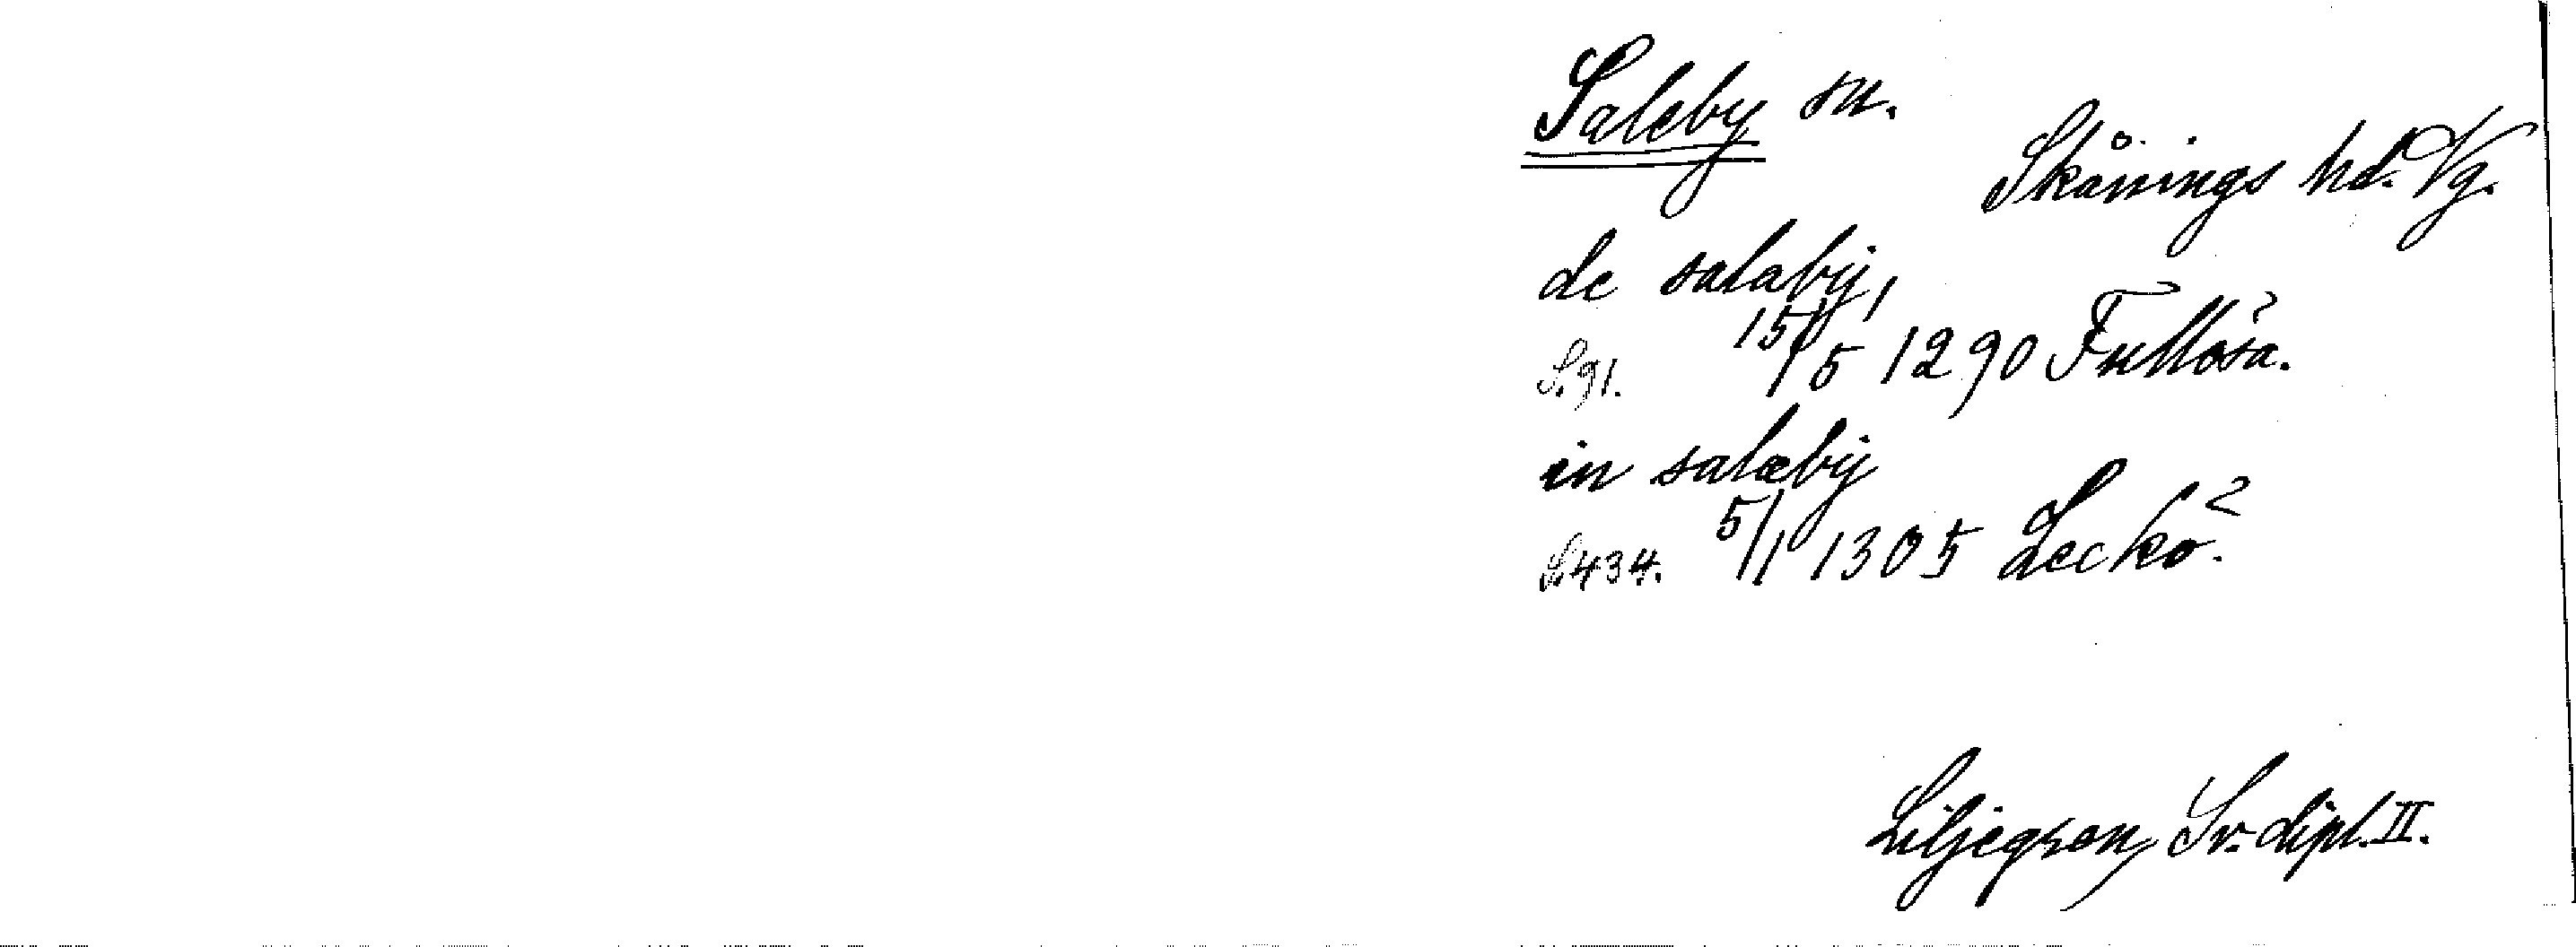 Saleby sn.
Skånings hd. Vg.
de salaby,
S. 91. 15/5 1290 Fullösa.
in salæby
S. 434. 5/1 1305 Leckö.
Liljegren, Sv. dipl. II.